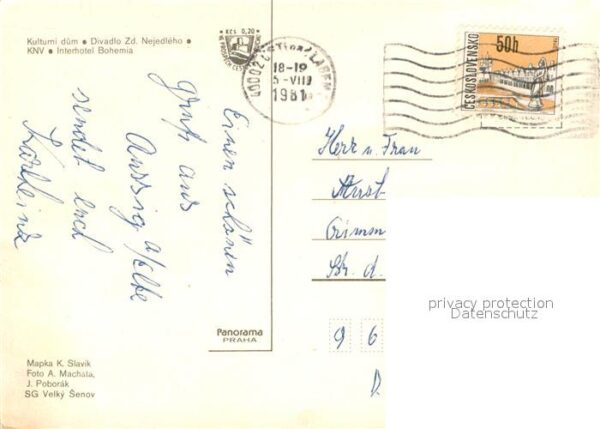 Kulturní dům • Divadlo Zd. Nejedlého •
KNV • Interhotel Bohemia
Kčs 0,20
40002 ÚSTÍ NAD LABEM
18-19
5-VIII
1981
50h
ČESKOSLOVENSKO
Einen schönen
Gruß aus
Aussig a/Elbe
sendet euch
Karlheinz
Herr u. Frau
Str. d.
9 6
D.
privacy protection
Datenschutz
Panorama
PRAHA
Mapka K. Slavík
Foto A. Machata,
J. Poborák
SG Velký Šenov